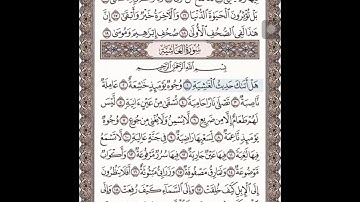 بَلْ تُؤْثِرُونَ الْحَيَوٰةَ الدُّنْيَا ١٦ وَالْآخِرَةُ خَيْرٌ وَأَبْقَىٰ ١٧ إِنَّ
هَٰذَا لَفِي الصُّحُفِ الْأُولَىٰ ١٨ صُحُفِ إِبْرَاهِيمَ وَمُوسَىٰ ١٩
سُورَةُ الْغَاشِيَةِ
بِسْمِ اللَّهِ الرَّحْمَٰنِ الرَّحِيمِ
هَلْ أَتَىٰكَ حَدِيثُ الْغَاشِيَةِ ١ وُجُوهٌ يَوْمَئِذٍ خَاشِعَةٌ ٢ عَامِلَةٌ
نَّاصِبَةٌ ٣ تَصْلَىٰ نَارًا حَامِيَةً ٤ تُسْقَىٰ مِنْ عَيْنٍ ءَانِيَةٍ ٥ لَّيْسَ
لَهُمْ طَعَامٌ إِلَّا مِن ضَرِيعٍ ٦ لَّا يُسْمِنُ وَلَا يُغْنِي مِن جُوعٍ ٧ وُجُوهٌ
يَوْمَئِذٍ نَّاعِمَةٌ ٨ لِّسَعْيِهَا رَاضِيَةٌ ٩ فِي جَنَّةٍ عَالِيَةٍ ١٠ لَّا تَسْمَعُ
فِيهَا لَاغِيَةً ١١ فِيهَا عَيْنٌ جَارِيَةٌ ١٢ فِيهَا سُرُرٌ مَّرْفُوعَةٌ ١٣ وَأَكْوَابٌ
مَّوْضُوعَةٌ ١٤ وَنَمَارِقُ مَصْفُوفَةٌ ١٥ وَزَرَابِيُّ مَبْثُوثَةٌ ١٦ أَفَلَا يَنظُرُونَ
إِلَى الْإِبِلِ كَيْفَ خُلِقَتْ ١٧ وَإِلَى السَّمَاءِ كَيْفَ رُفِعَتْ ١٨